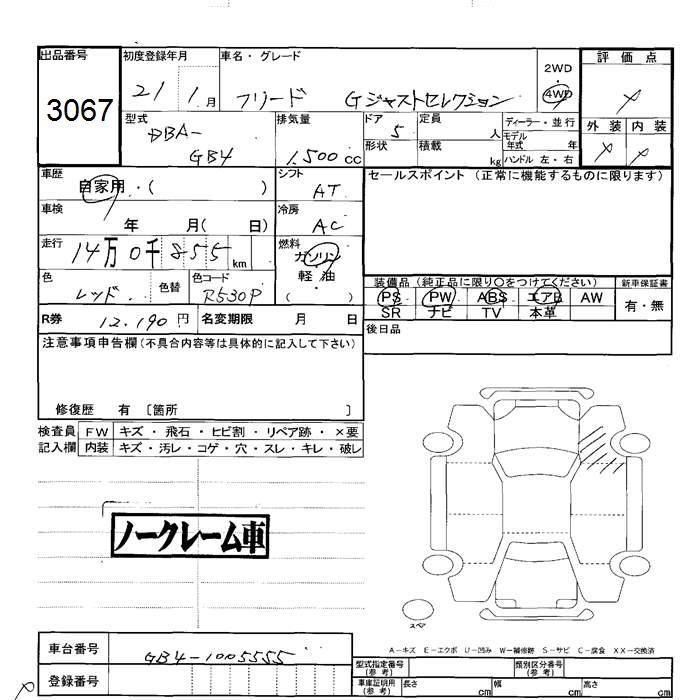 出品番号
3067
初度登録年月
21 1月
車名・グレード
フリード Gジャストセレクション
2WD
・
4WD
評価点
外装 内装
型式
DBA-
GB4
排気量
1.500cc
ドア
5
形状
定員 人
積載 kg
ディーラー・並行
モデル
年式 年
ハンドル 左・右
車歴
自家用・( )
シフト
AT
セールスポイント (正常に機能するものに限ります)
車検
年 月( 日)
冷房
AC
走行
14万0千855km
燃料
ガソリン
軽油
( ・ )
色
レッド
色替
色コード
R530P
装備品(純正品に限り○をつけてください)
PS PW ABS エアB AW
SR ナビ TV 本革
新車保証書
有・無
R券 12.190円
名変期限 月 日
後日品
注意事項申告欄(不具合内容等は具体的に記入して下さい)
修復歴 有 〔箇所 〕
検査員 FW キズ・飛石・ヒビ割・リペア跡・×要
記入欄 内装 キズ・汚レ・コゲ・穴・スレ・キレ・破レ
ノークレーム車
スペア
A－キズ E－エクボ U－凹み W－補修跡 S－サビ C－腐食 XX－交換済
車台番号 GB4-1005555
登録番号
型式指定番号
(参考)
類別区分番号
(参考)
車庫証明用
(参考)
長さ cm 幅 cm 高さ cm